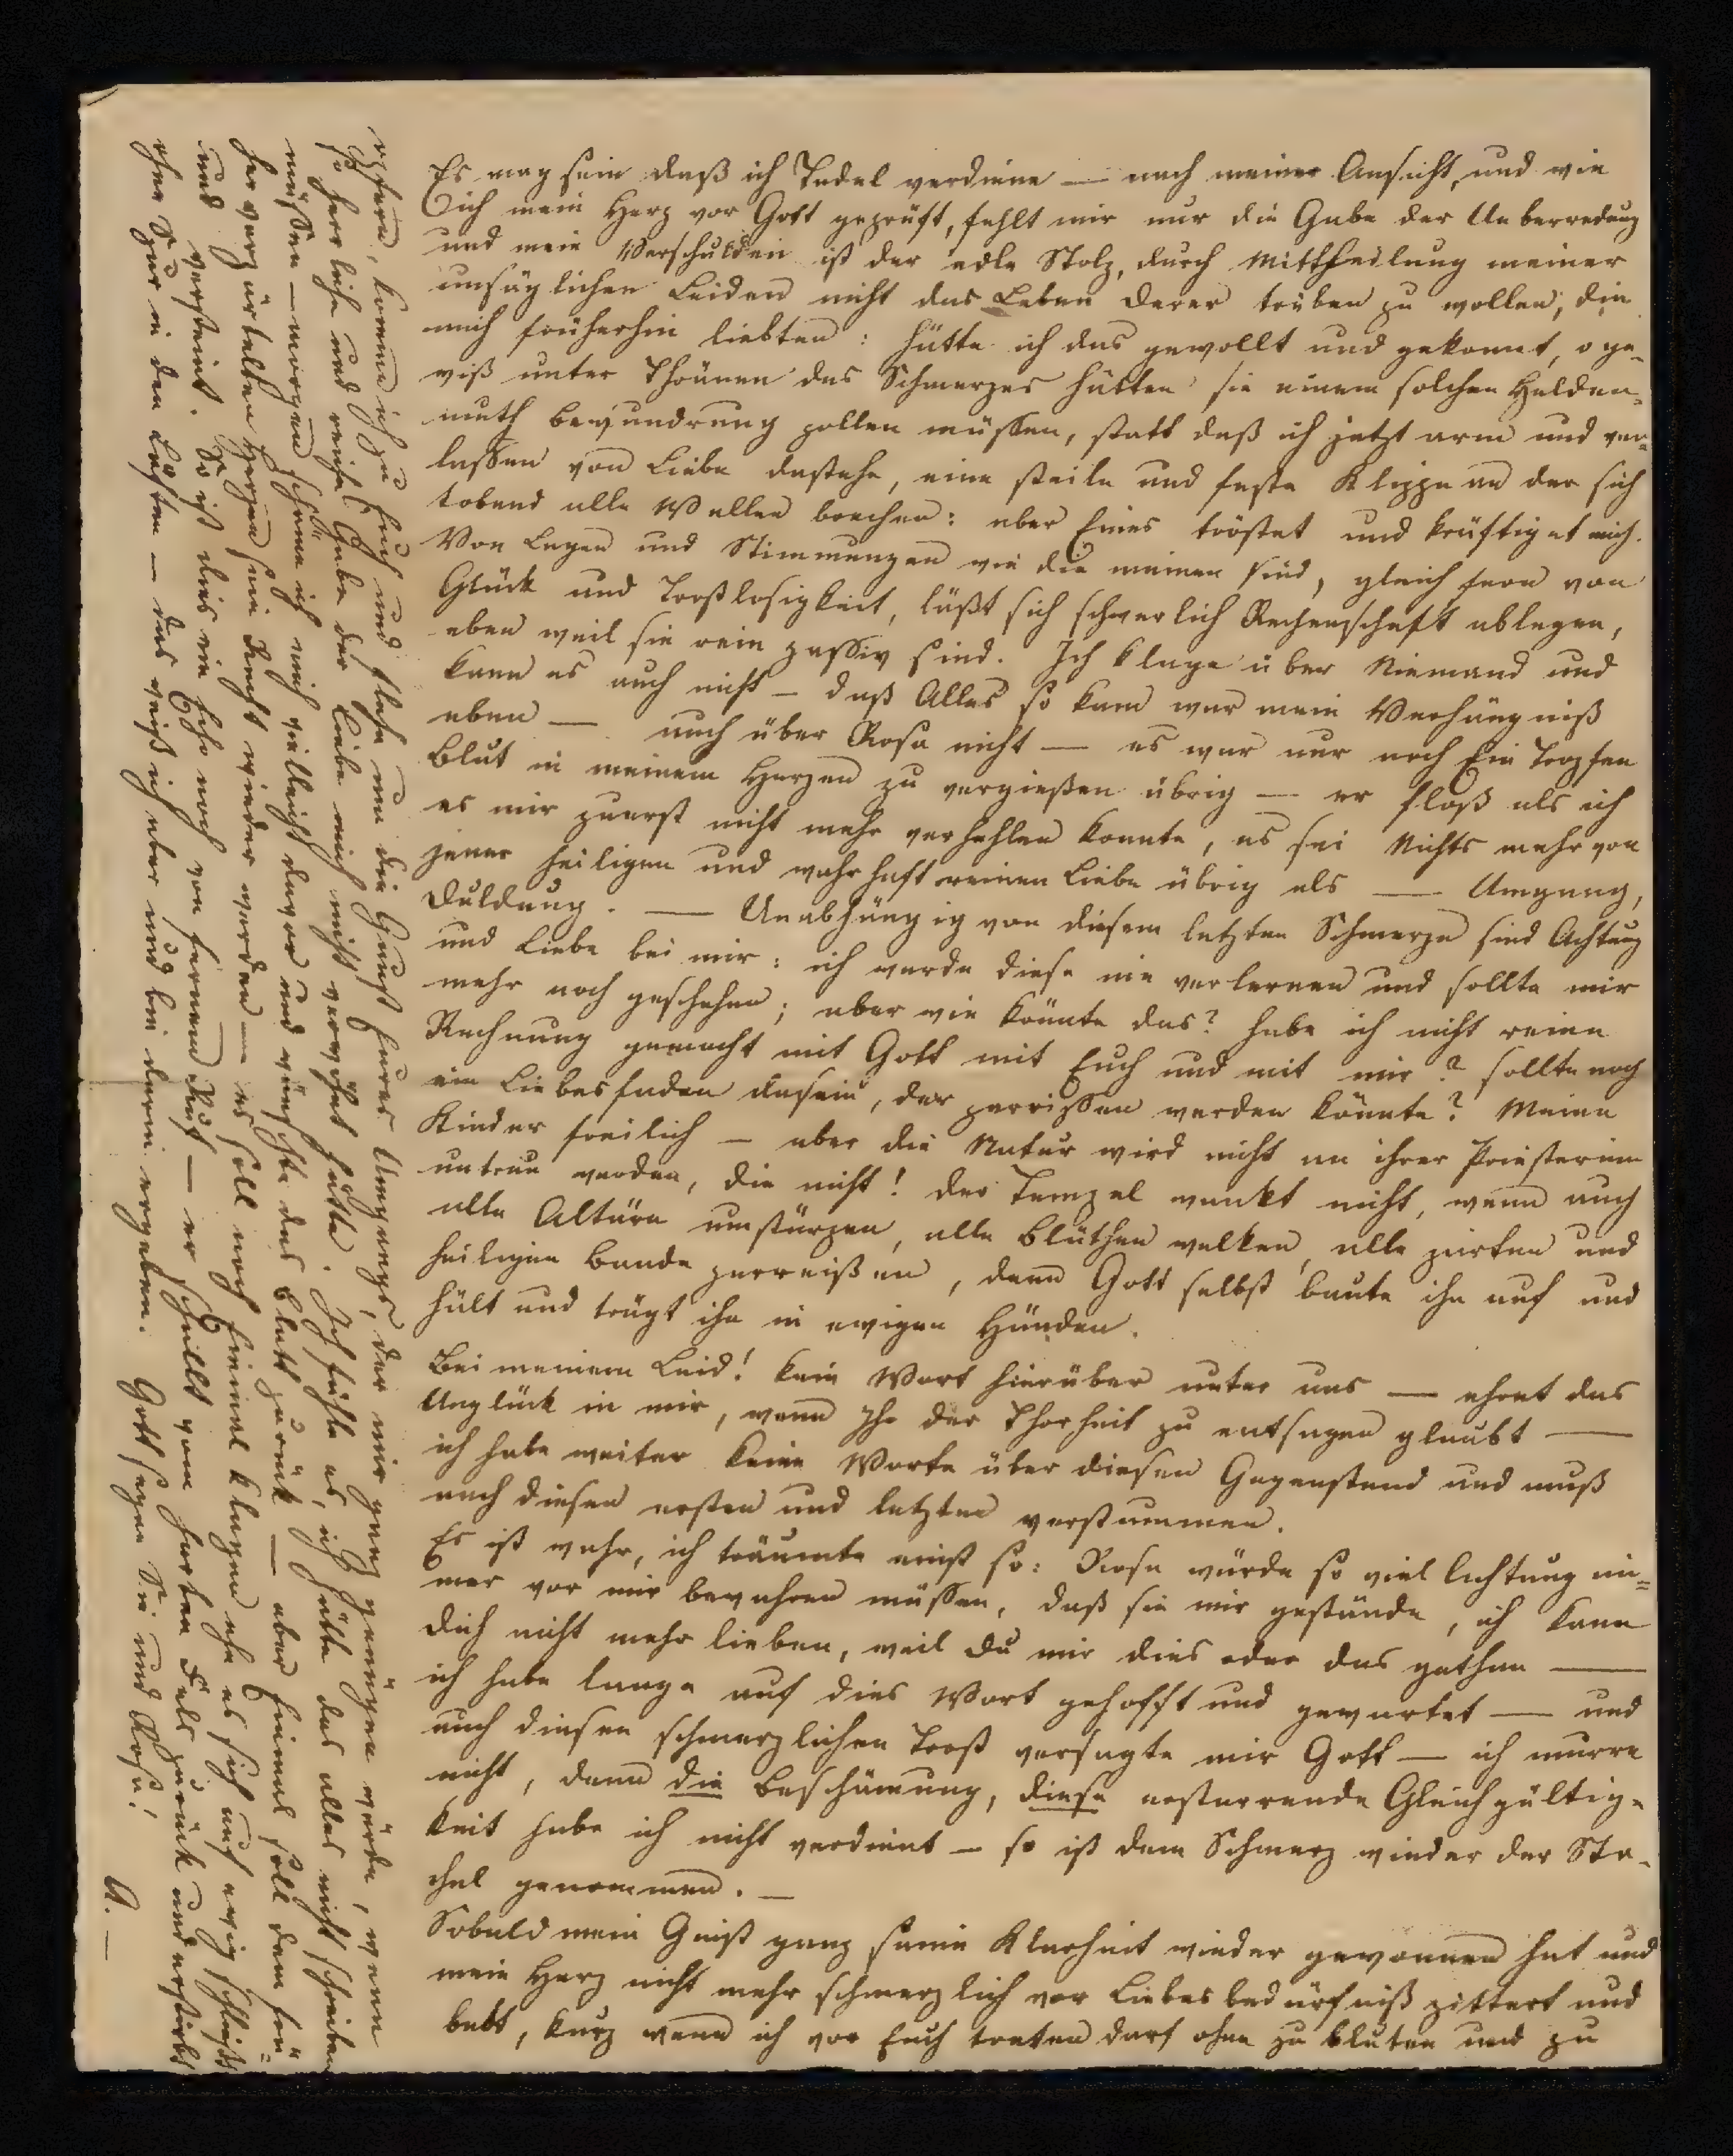 Es mag sein daß ich Tadel verdiene — nach meiner Ansicht, und wie
ich mein Herz vor Gott geprüft, fehlt mir nur die Gabe der Ueberredung
und mein Verschulden ist der edle Stolz, durch Mittheilung meiner
unsäglichen Leiden nicht das Leben derer trüben zu wollen, die
mich früherhin liebten: hätte ich das gewollt und gekonnt, o ge-
wiß unter Thränen des Schmerzes hätten sie einem solchen Helden-
muth Bewundrung zollen müssen, statt daß ich jetzt arm und ver-
lassen von Liebe dastehe, eine steile und feste Klippe an der sich
tobend alle Wellen brechen: aber Eines tröstet und kräftiget mich.
Von Lagen und Stimmungen wie die meinen sind, gleich fern von
Glück und Trostlosigkeit, läßt sich schwerlich Rechenschaft ablegen,
eben weil sie rein passiv sind. Ich klage über Niemand und
kann es auch nicht — daß Alles so kam war mein Verhängniß
eben — auch über Rosa nicht — es war nur noch Ein Tropfen
Blut in meinem Herzen zu vergießen übrig — er floß als ich
es mir zuerst nicht mehr verhehlen konnte, es sei Nichts mehr von
jener heiligen und wahrhaft reinen Liebe übrig als — Umgang,
Duldung. — Unabhängig von diesem letzten Schmerze sind Achtung
und Liebe bei mir: ich werde diese nie verlernen und sollte mir
mehr noch geschehen; aber wie könnte das? habe ich nicht reine
Rechnung gemacht mit Gott mit Euch und mit mir? sollte noch
ein Liebesfaden dasein, der zerrissen werden könnte? Meine
Kinder freilich — aber die Natur wird nicht an ihrer Priesterinn
untreu werden, die nicht! der Tempel wankt nicht, wenn auch
alle Altäre umstürzen, alle Blüthen welken, alle zarten und
heiligen Bande zerreißen, denn Gott selbst baute ihn auf und
hält und trägt ihn in ewigen Händen.
Bei meinem Leid! kein Wort hierüber unter uns — ehret das
Unglück in mir, wenn Ihr der Thorheit zu entsagen glaubt —
ich habe weiter keine Worte über diesen Gegenstand und muß
nach diesen ersten und letzten verstummen.
Es ist wahr, ich träumte einst so: Rosa würde so viel Achtung im-
mer vor mir bewahren müssen, daß sie mir gestände, ich kann
dich nicht mehr lieben, weil du mir dies oder das gethan —
ich habe lange auf dies Wort gehofft und gewartet — und
auch diesen schmerzlichen Trost versagte mir Gott — ich murre
nicht, denn die Beschämung, diese erstarrende Gleichgültig-
keit habe ich nicht verdient — so ist dem Schmerz wieder der Sta-
chel genommen. —
Sobald mein Geist ganz seine Klarheit wieder gewonnen hat und
mein Herz nicht mehr schmerzlich vor Liebesbedürfniß zittert und
bebt, kurz wenn ich vor Euch treten darf ohne zu bluten und zu
opfern, komme ich zu Euch und flehe um die Gunst Eures Umgangs, der mir ganz genügen würde, wenn
so herrliche und reiche Gabe der Liebe mich nicht verwöhnt hätte. Ich fühle es, ich hätte das alles nicht schreiben
müssen — morgen schäme ich mich vielleicht davor und wünschte das Blatt zurück — aber einmal soll dem frü-
her verzärtelten Herzen sein Recht wieder werden — es soll noch einmal klagen ehe es sich auf ewig schließt
und versteint. So ist dies ein Echo noch von fernem Ruf — er schallt vom harten Fels zurück und erstirbt
ohne Spur in den Lüften — das weiß ich aber und bin darein ergeben. Gott segne Sie und Rosa!
A. —